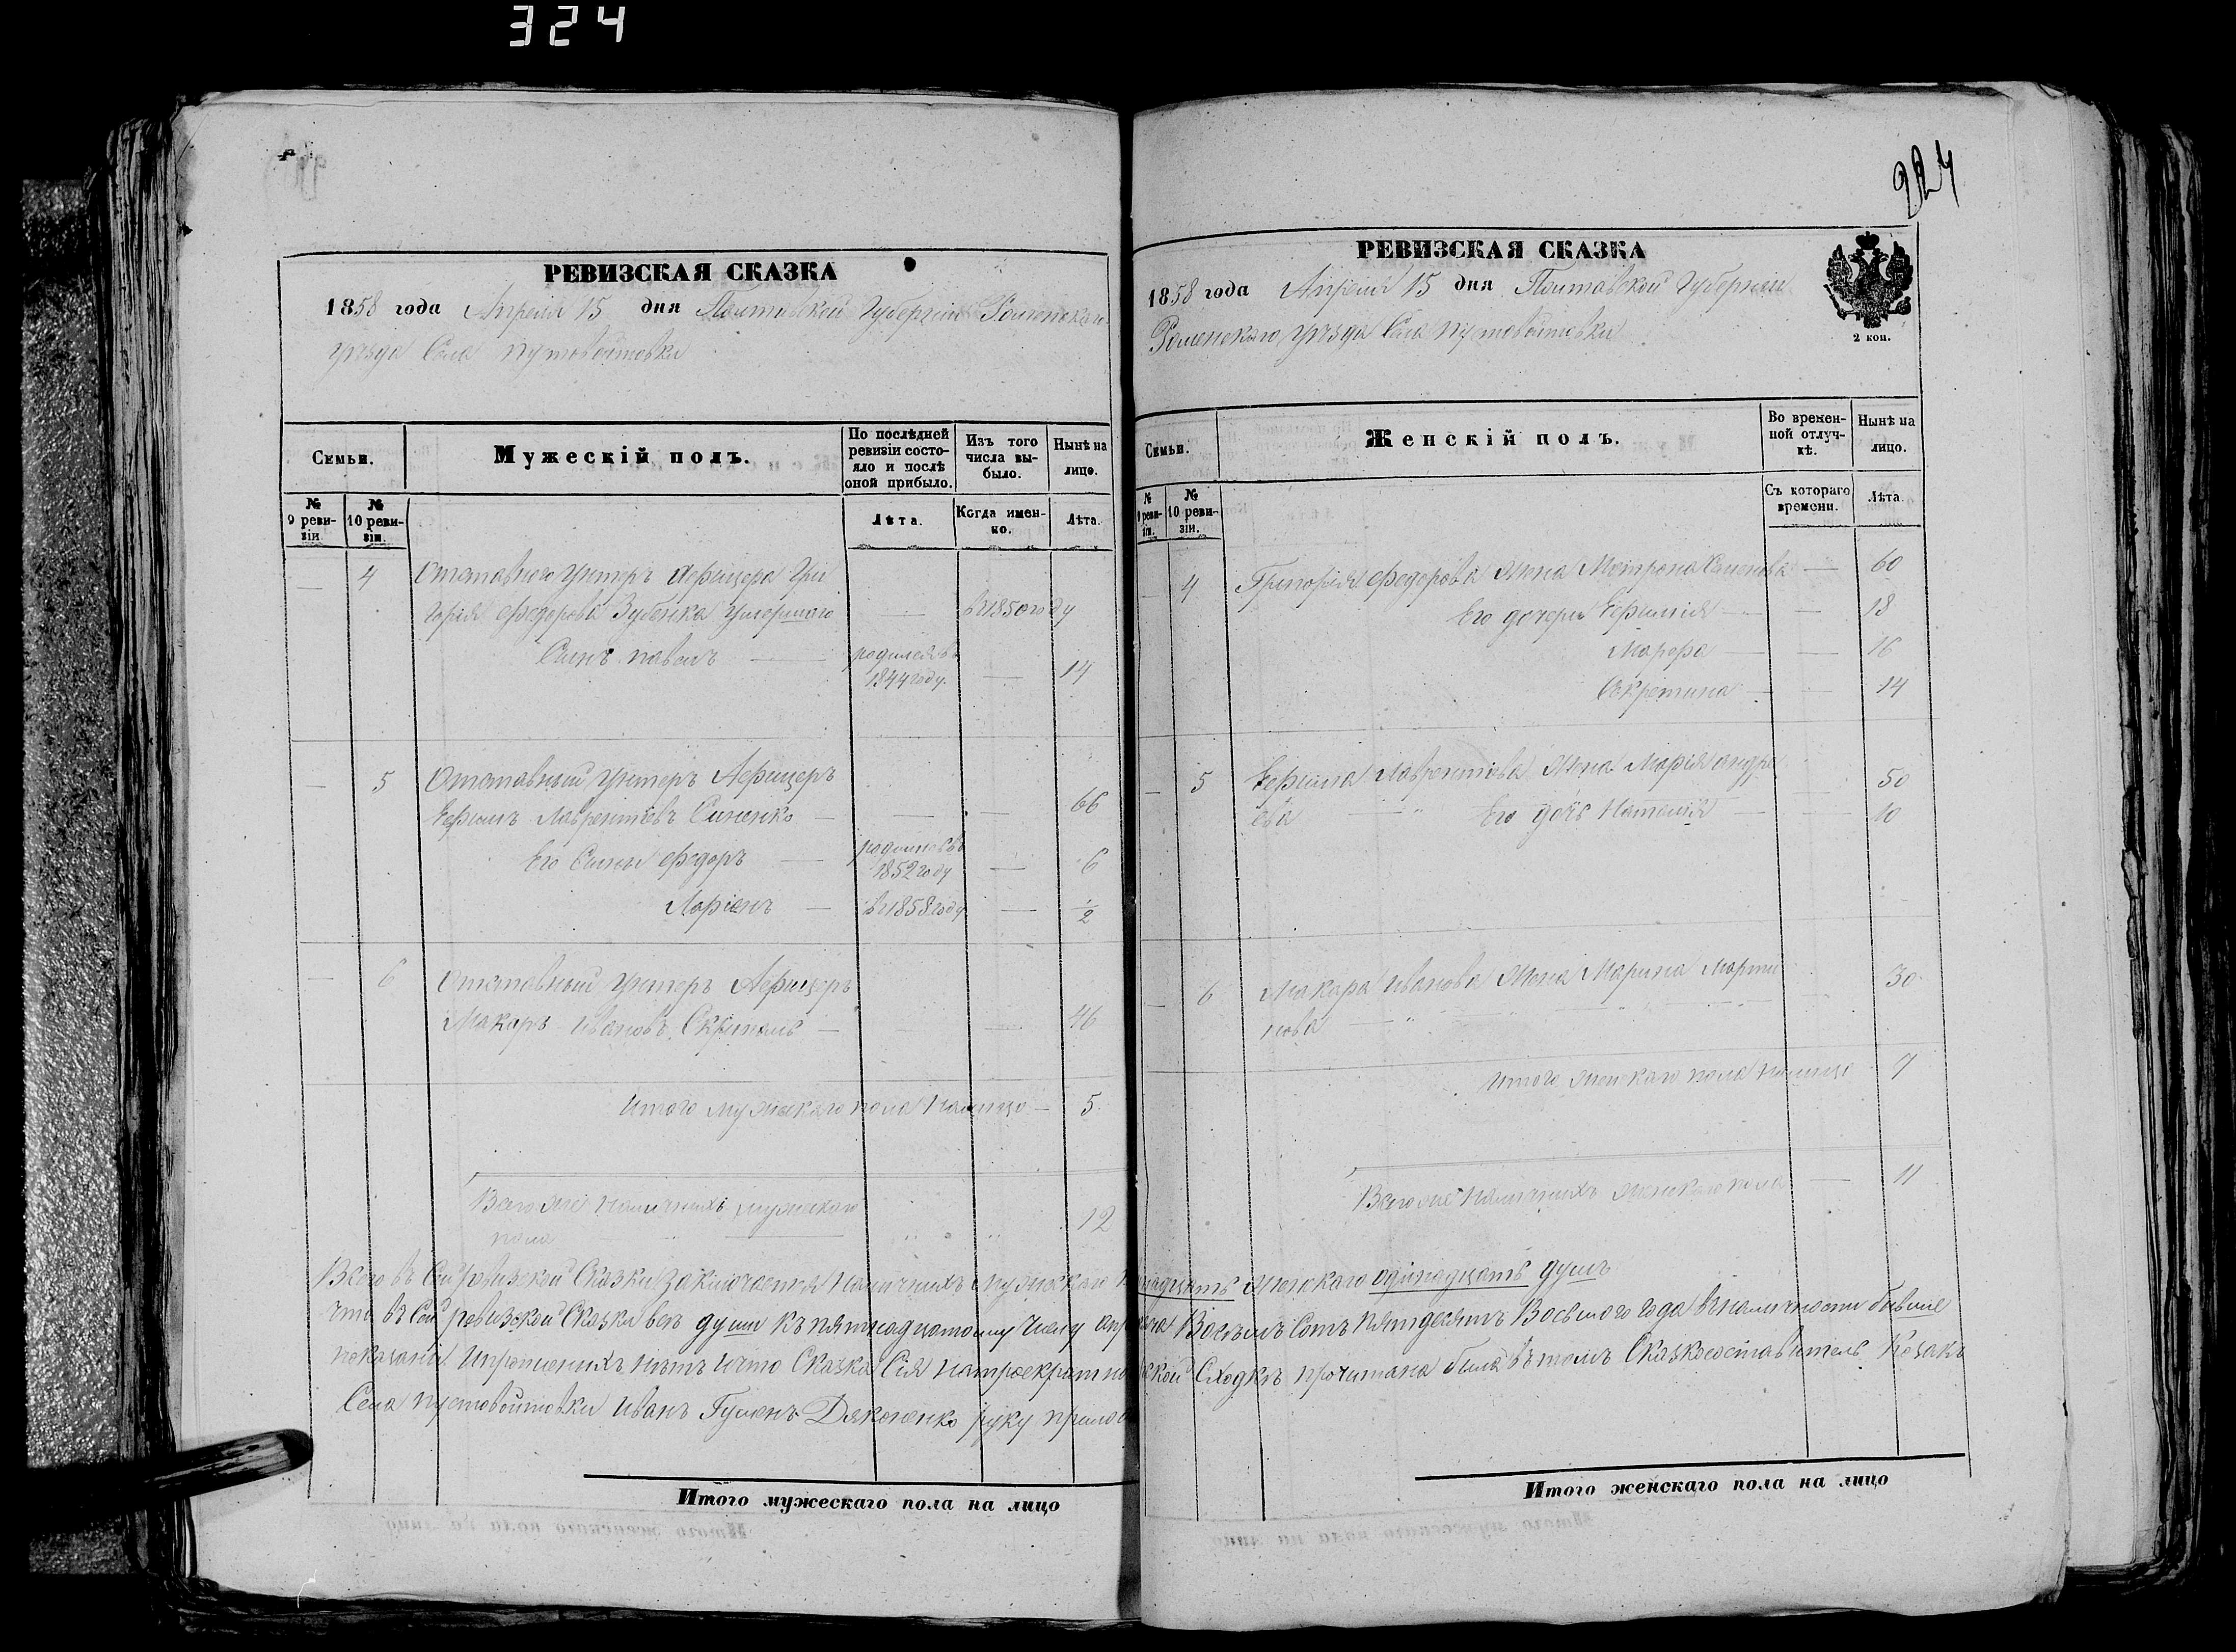 324
РЕВИЗСКАЯ СКАЗКА
1858 года Апреля 15 дня Полтавской Губерніи Роменскаго
уезда Села Пустовойтовки
Семьи.
Мужескій полъ.
По послѣдней ревизіи состояло и послѣ оной прибыло.
Изъ того числа выбыло.
Нынѣ на лицо.
№ 9 ревизіи.
№ 10 ревизіи.
Лѣта.
Когда именно.
Лѣта.
4 Отставного Унтеръ Афицера Гри
горія Федорова Зубенка умершаго — в 1850 году
Сынъ павелъ — родился въ 1844 году. — 14
— 5 Отставный Унтеръ Афицеръ
Ефимъ Лаврентіевъ Синенко — — — 66
Его Сыны Федоръ — родились въ 1852 году — 6
Ларіонъ — в 1858 году — 1/2
— 6 Отставный Унтеръ Афицеръ
Макаръ Ивановъ — — 46
Итого мужескаго пола Налицо — 5
Всего же Наличнихъ мужескаго
пола 12
Всего въ Сей ревизской Сказки заключается Наличнихъ мужескаго
что въ Сей ревизской Сказки все души къ пятнадцатому числу
показаны и нетъ и что Сказка Сія
Села пустовойтовки Иванъ Гуменъ Дяконенко руку
Итого мужескаго пола на лицо
324
РЕВИЗСКАЯ СКАЗКА
1858 года Апреля 15 дня Полтавской Губерніи
Роменскаго уезда Села Пустовойтовки
2 коп.
Семьи.
Женскій полъ.
Во временной отлучкѣ.
Нынѣ на лицо.
№ 9 ревизіи.
№ 10 ревизіи.
Съ котораго времени.
Лѣта.
4 Григорія Федорова Жена Мотрона Семенова — 60
Его дочери Ефимія — — 18
Марфа — — 16
— 14
— 5 Ефима Лаврентіева Жена Марія андре
ева 50
Его дочь Наталія — — 10
— 6 Макара Иванова Жена Марина Марти
нова 30
Итого женскаго пола Налицо 7
Всего же Наличнихъ женскаго пола — 11
женскаго одинадцать душъ
Восемъ Сотъ Пятдесятъ Восьмого года в наличности бывшие
Сходкѣ прочитана была въ томъ Сказкосоставитель Козакъ
Итого женскаго пола на лицо